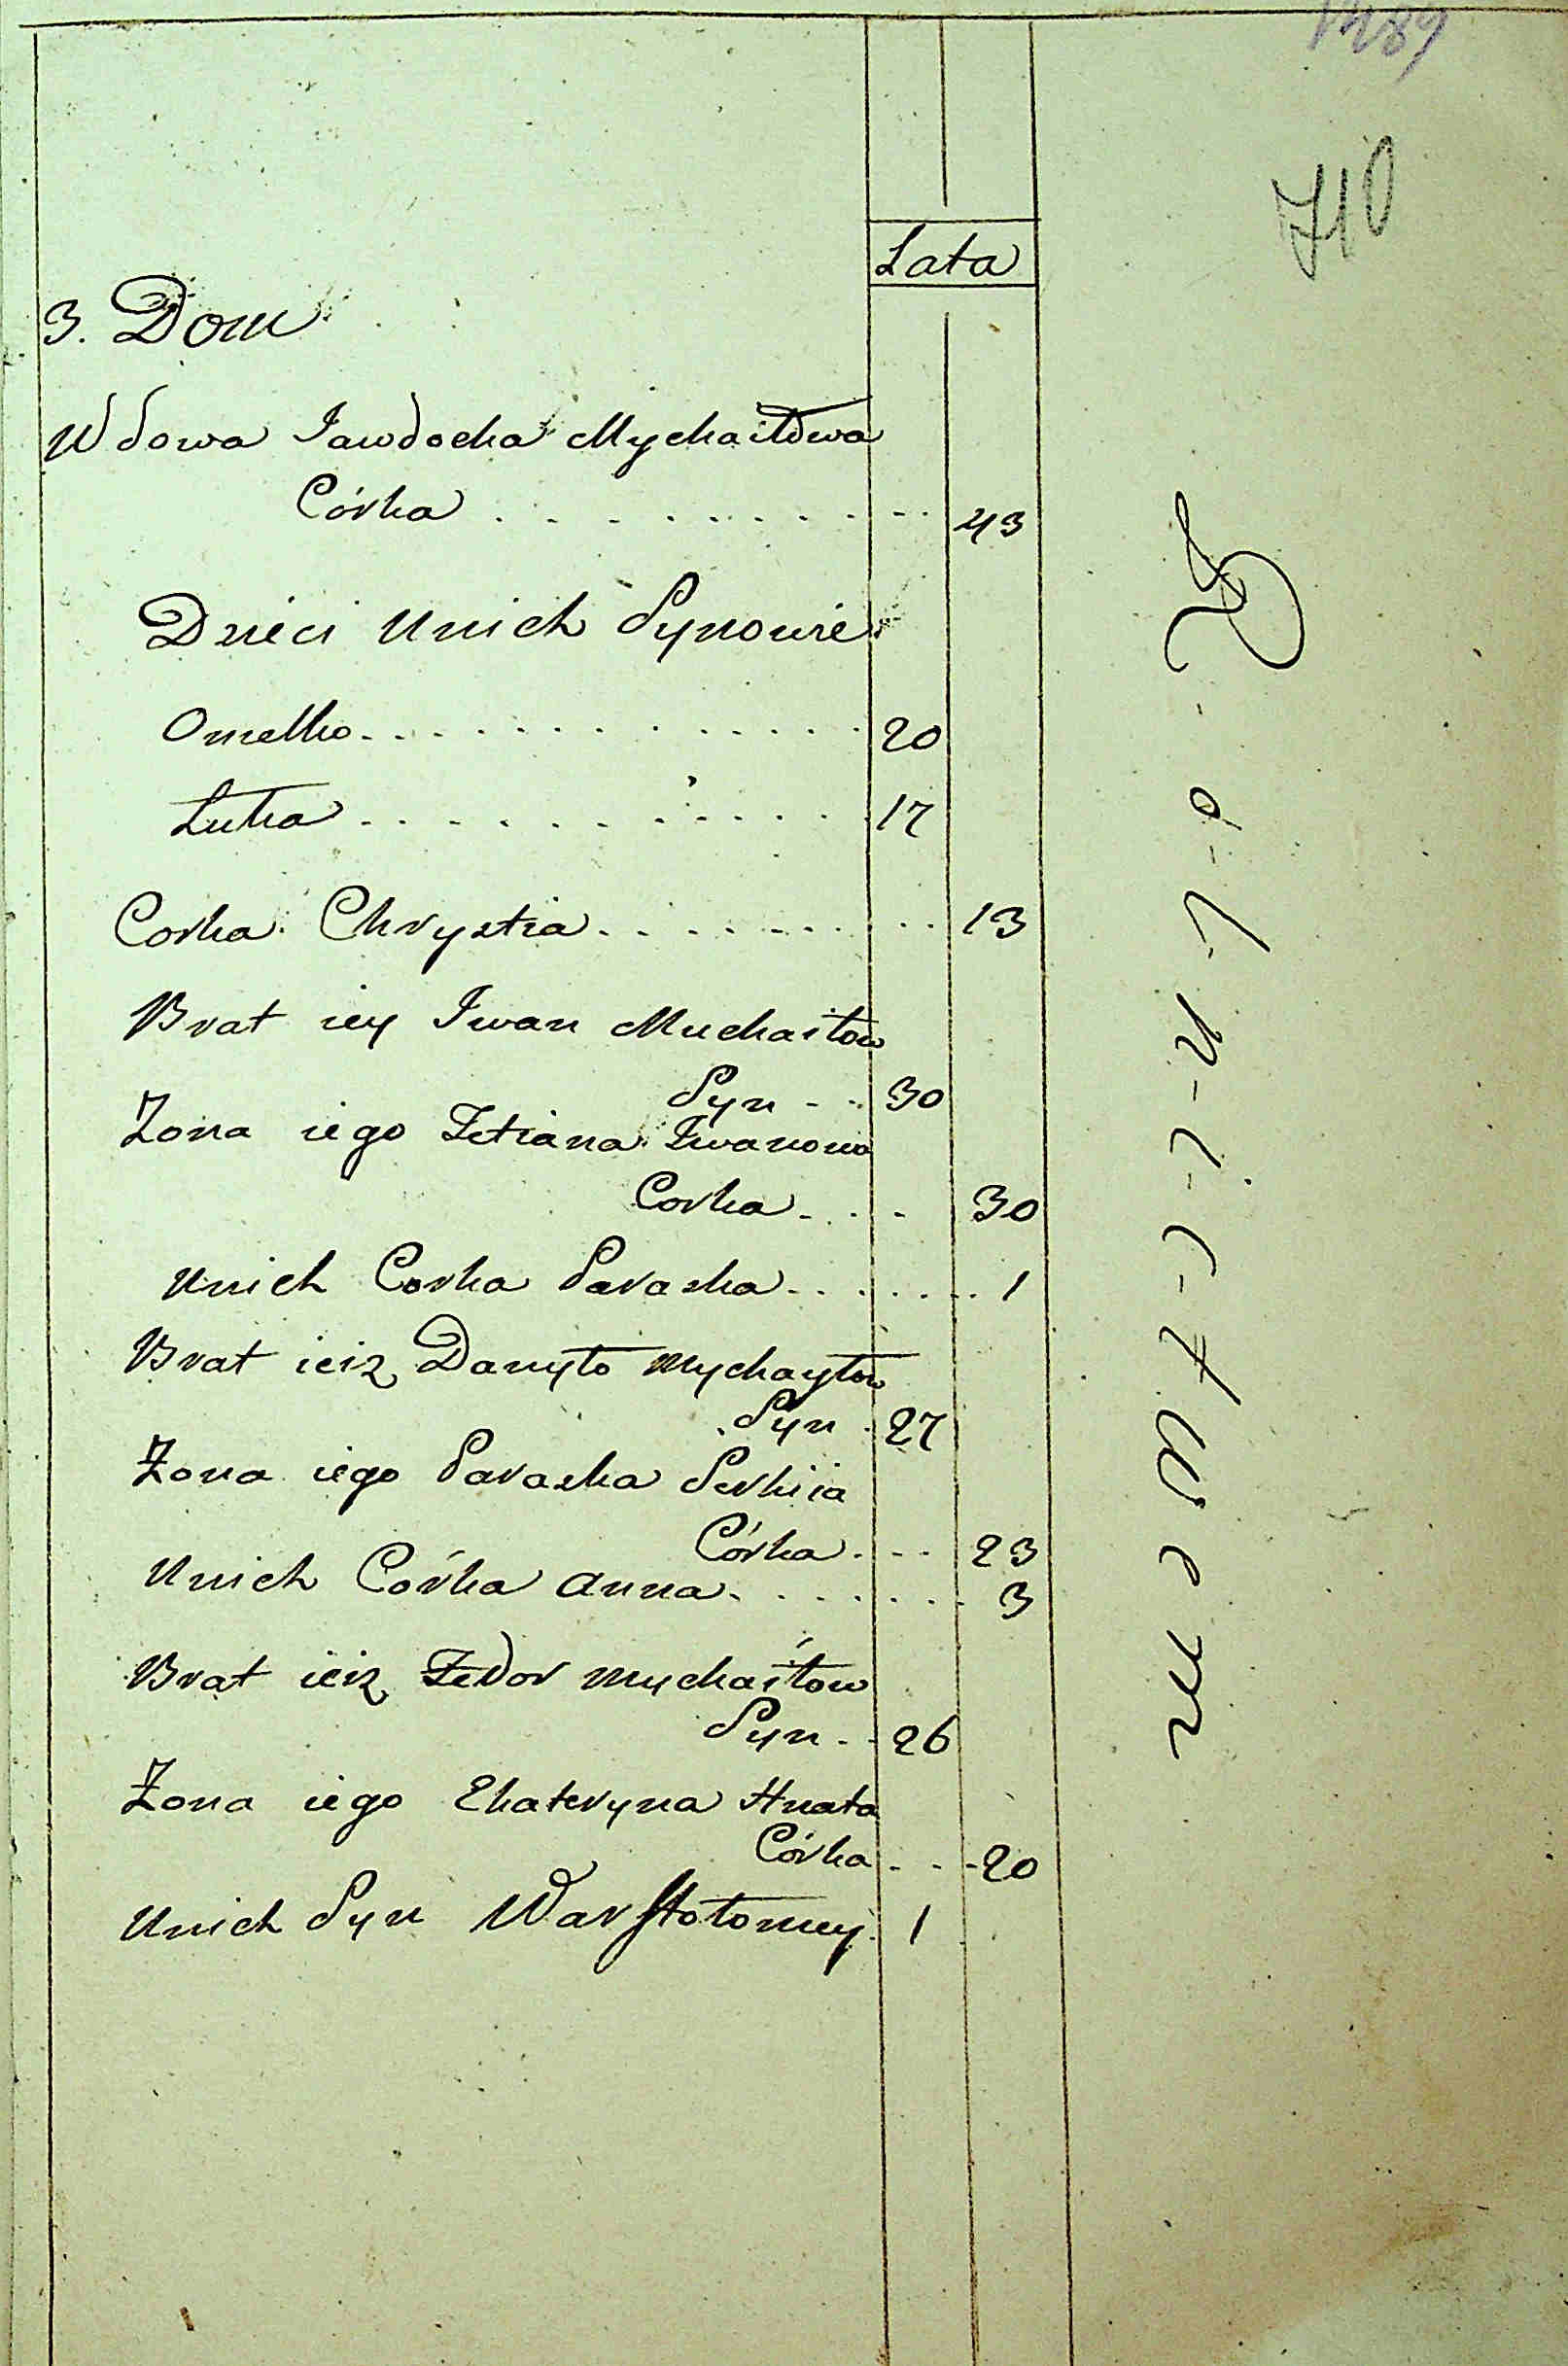 710
Lata
3. Dom
Wdowa Jawdocha Mychaiłowa
Córka . . . . . . . . . . 43
Dzieci Unich Synowie
Omelko . . . . . . . . . . 20
Łuka . . . . . . . . . . 17
Corka Chrystia . . . . . . . . . 13
Brat iey Iwan Muchaiłow
Syn - - 30
Zona iego Tetiana Iwanowa
Corka - . . - 30
Unich Corka Paraska - . . . . . . 1
Brat ieiz Danyło Mychayłow
Syn . 27
Zona iego Paraska Serhiia
Córka . - - 23
Unich Córka Anna . . . . . . . 3
Brat ieiz Fedor Mychaiłow
Syn - - 26
Żona iego Ekateryna Hnata
Córka - - - 20
Unich Syn Warftołomey . 1